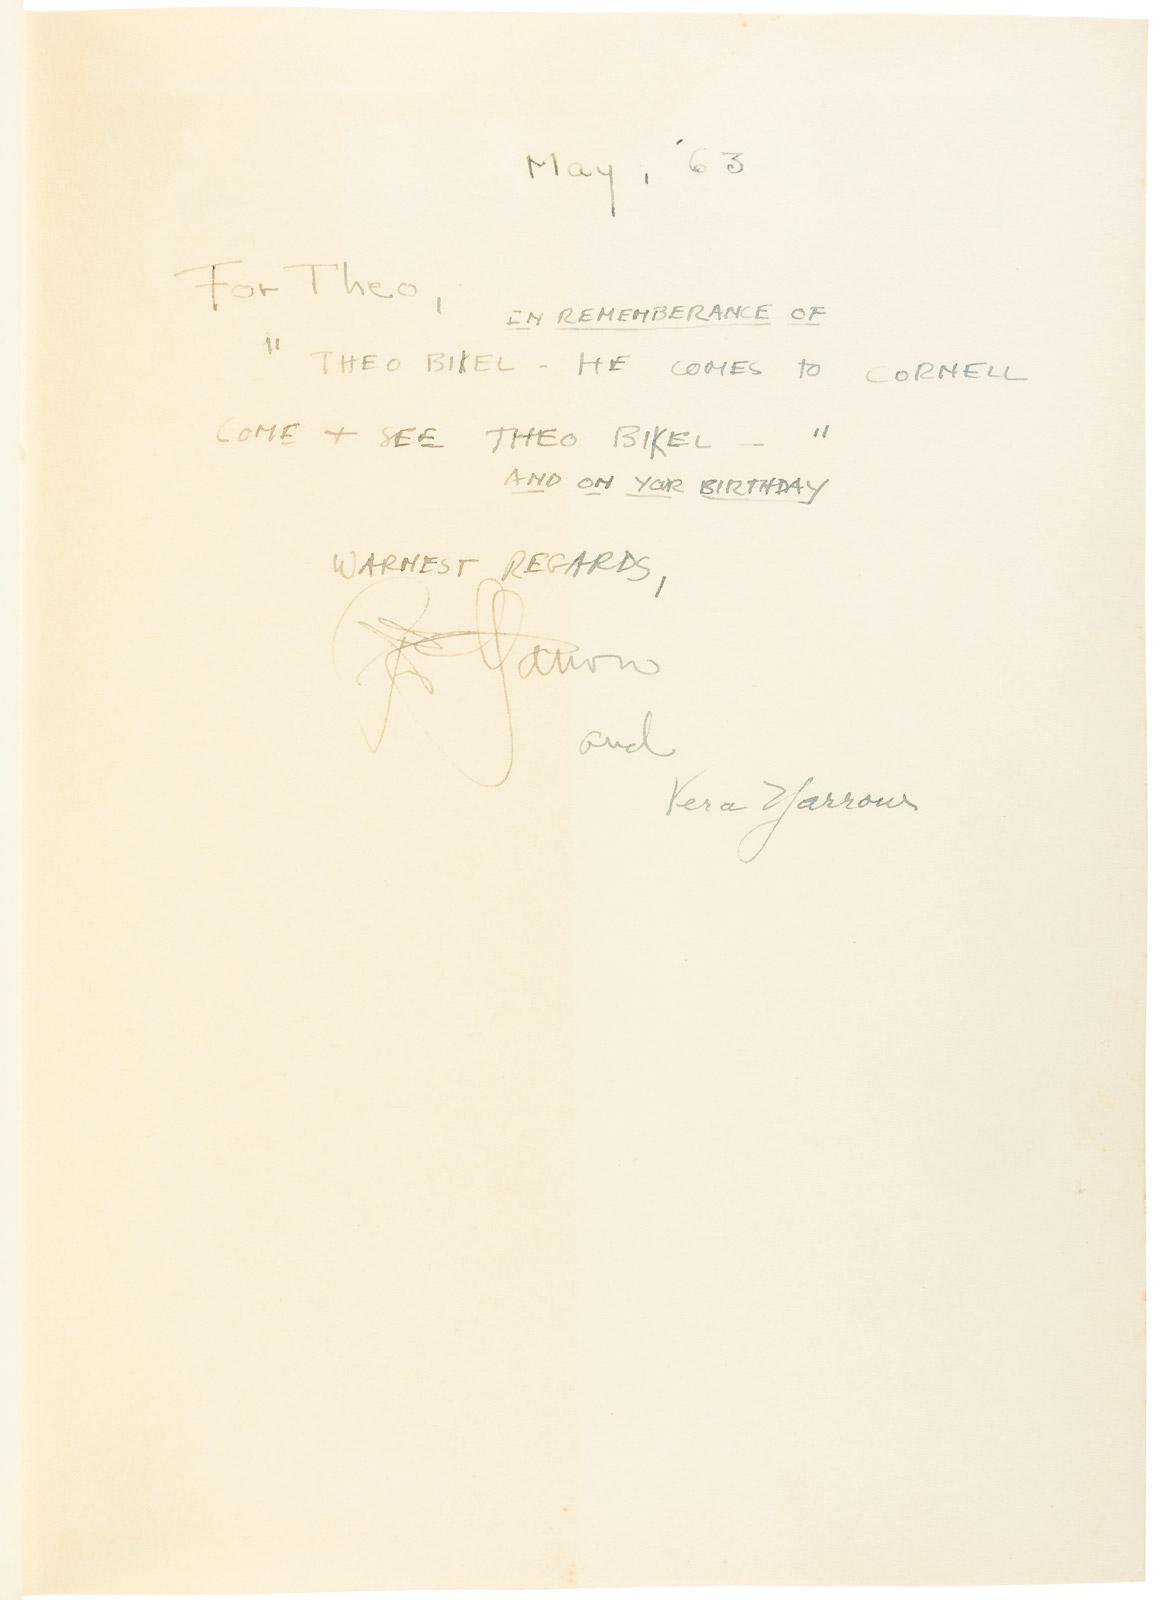 May, '63
For Theo,
IN REMEMBERANCE OF
" THEO BIKEL - HE COMES to CORNELL
COME + SEE THEO BIKEL — "
AND ON YOUR BIRTHDAY
WARMEST REGARDS,
Yarrow
and
Vera Yarrow